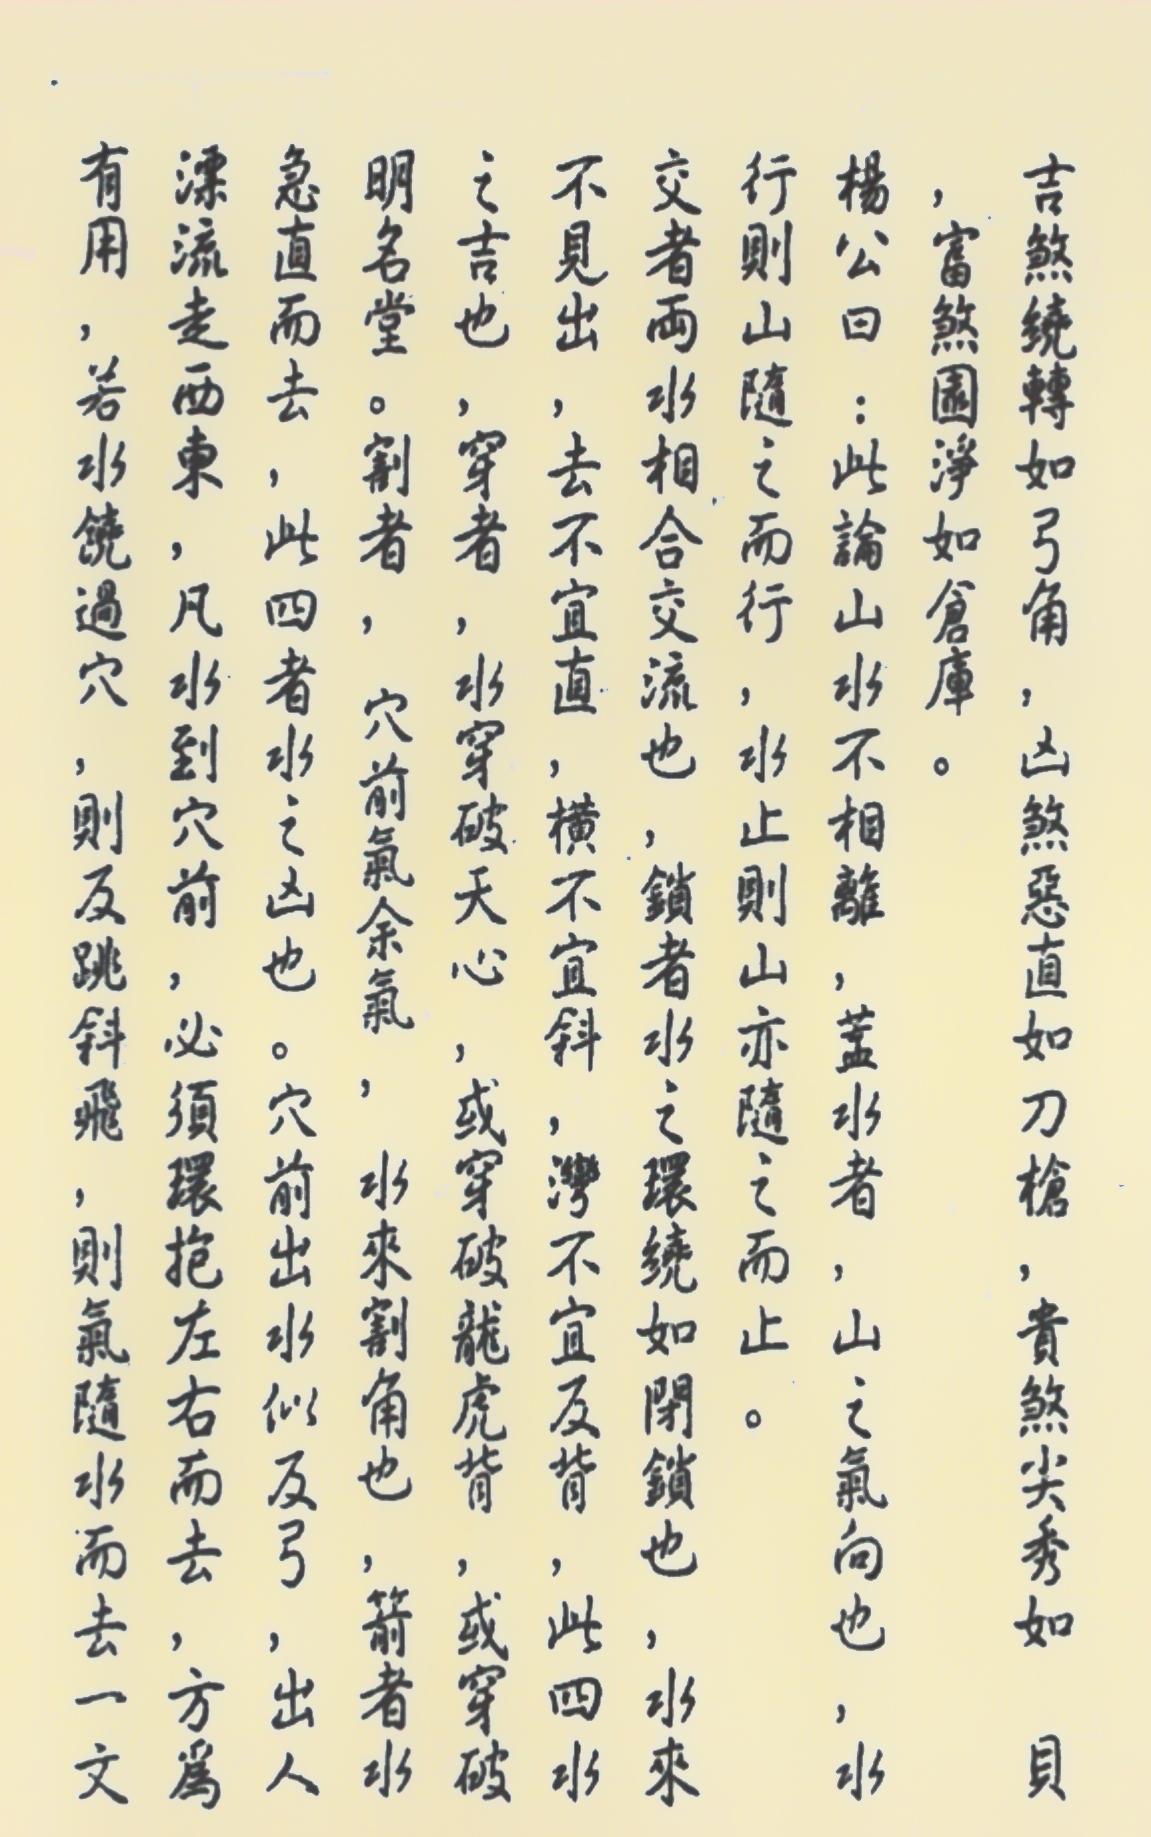 吉煞繞轉如弓角，凶煞惡直如刀槍，貴煞尖秀如　貝
，富煞園淨如倉庫。
楊公曰：此論山水不相離，蓋水者，山之氣向也，水
行則山隨之而行，水止則山亦隨之而止。
交者両水相合交流也，鎖者水之環繞如閉鎖也，水來
不見出，去不宜直，橫不宜斜，灣不宜反背，此四水
之吉也，穿者，水穿破天心，或穿破龍虎背，或穿破
明名堂。割者，穴前氣余氣，水來割角也，箭者水
急直而去，此四者水之凶也。穴前出水似反弓，出人
漂流走西東，凡水到穴前，必須環抱左右而去，方為
有用，若水饒過穴，則反跳斜飛，則氣隨水而去一文